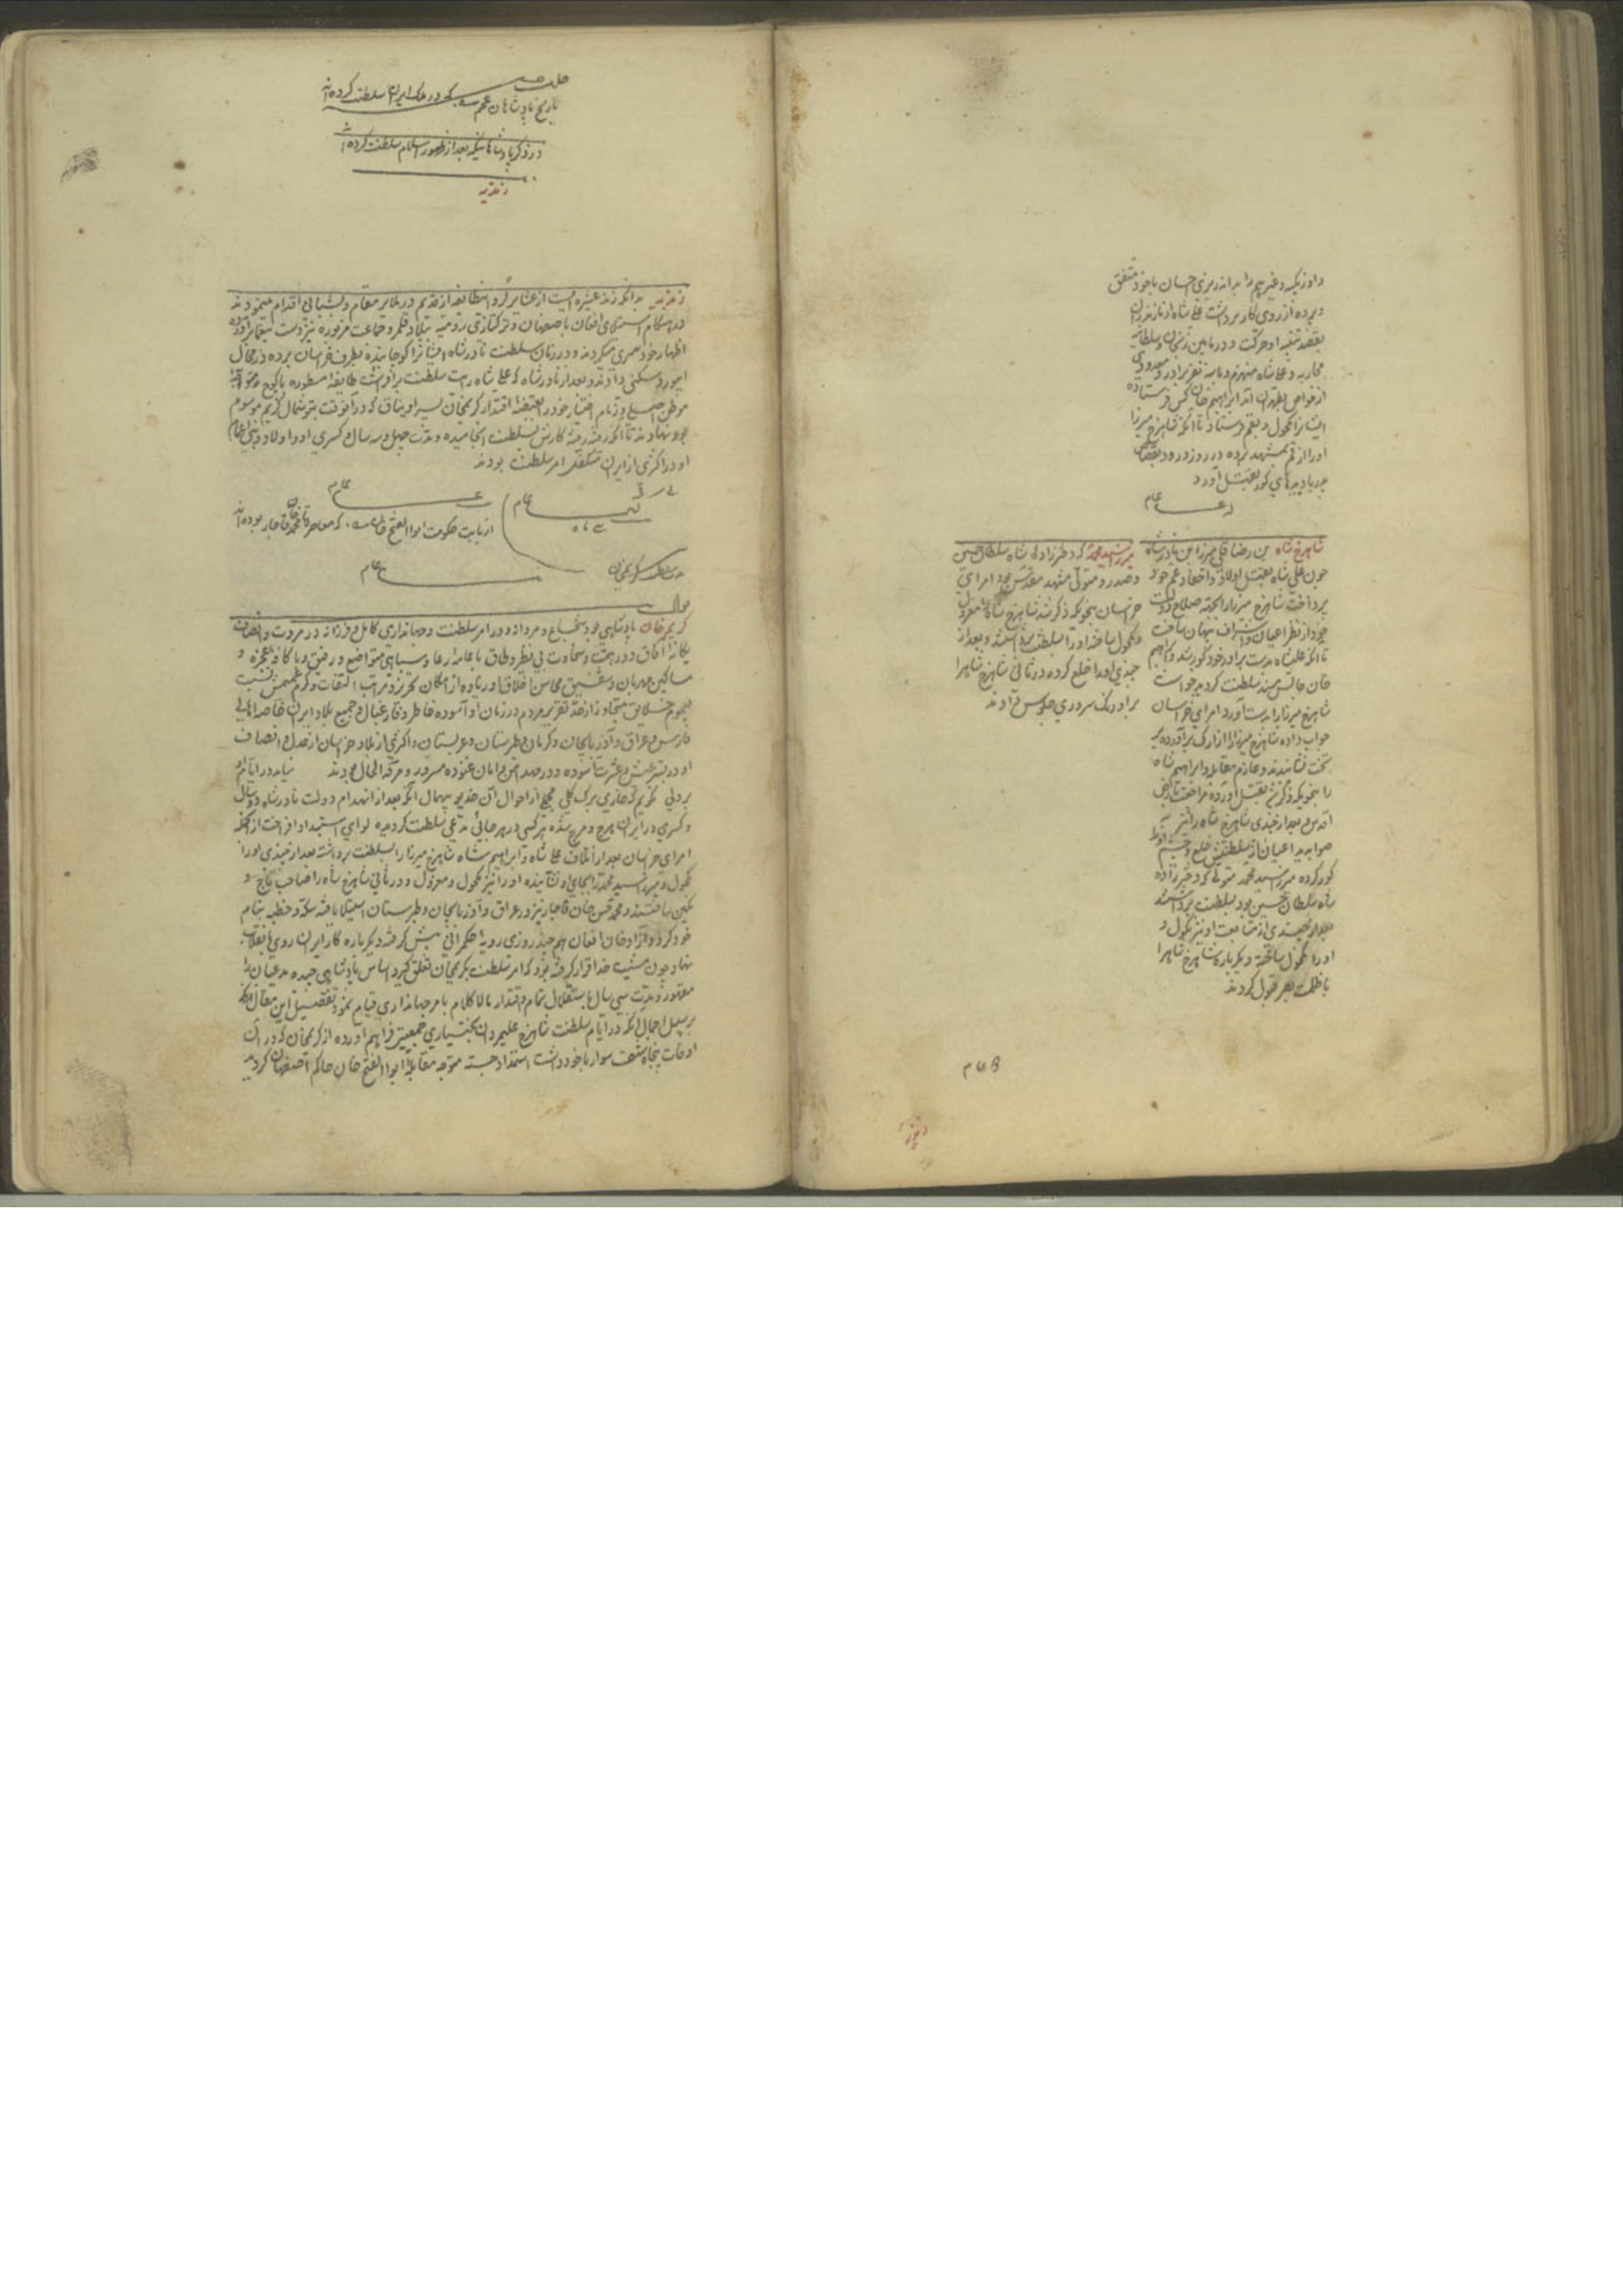 داوزبکیه و غیرهم را به اندرزهای حسان با خود متفق
و پرده از روی کار برداشت علی شاه از مازندران
بقصد تنبیه او حرکت و در مابین زنجان و سلطانیه
محاربه و علی شاه منهزم و با سه نفر برادر و معدودی
از خواص بطهران آمد ابراهیم خان کس فرستاده
ایشانرا مکحول و بقم فرستاد تا آنکه شاهرخ میرزا
او را از قم بمشهد برده در روز ورود بقصاص
پدر با دیده‌های کور بقتل آورد
عام
شاهرخ شاه بن رضا قلی میرزا بن نادر شاه
چون علی شاه بقتل اولاد و احفاد عم خود
پرداخت شاهرخ میرزا را بجهة صلاح دولت
خود از نظر اعیان و اشراف پنهان ساخت
تا آنکه علیشاه بدست برادر خود کور شد و ابراهیم
خان جالس مسند سلطنت گردید خواست
شاهرخ میرزا را بدست آورد امرای خراسان
جواب داده شاهرخ میرزا را از ارک برآورده بر
تخت نشانیدند و عازم مقابله و ابراهیم شاه
را بنحویکه ذکر شد بقتل آورده مراجعت بارض
اقدس و بعد از چندی شاهرخ شاه را نیز به
صوابدید اعیان از سلطنتش خلع و چشم او را
کور کرده میرزا سید محمد متولی که دخترزاده
شاه سلطان حسین بود بسلطنت برداشتند
بعد از چندی از متابعت او نیز نکول و
او را مکحول ساخته و دیگر باره شاهرخ شاهرا
با ظلمت بصر قبول کردند
میرزا سید محمد که دخترزاده شاه سلطان حسین
و صدر و متولی مشهد مقدس بود امرای
خراسان بنحویکه ذکر شد شاهرخ شاه را معزول
و مکحول ساخته او را بسلطنت برداشتند و بعد از
چندی او را خلع کرده در ثانی شاهرخ شاهرا
بر اورنگ سروری جلوس دادند
عام
زندیه
تاریخ پادشاهان عجم که در ملک ایران سلطنت کرده‌اند
در ذکر پادشاهانیکه بعد از ظهور اسلام سلطنت کرده‌اند
زندیه
زندیه بدانکه زند عشیره ایست از عشایر کرد این طایفه از قدیم در ملایر مقام و بشبانی اقدام مینمودند
در هنگام استیلای افغان باصفهان و ترکتازی رومیه ببلاد قلمرو جماعت مزبوره نیز دست بیغما برآورده
اظهار خودسری میکردند و در زمان سلطنت نادر شاه ایشانرا کوچانیده بطرف خراسان برده در محال
ابیورد سکنی دادند و بعد از نادرشاه که علی شاه رایت سلطنت برافراشت طایفه مسطوره باکوچ
موطن اصلی و زمام اختیار خود را بقبضه اقتدار کریمخان پسر اویناق که در آنوقت بتوشمال کریم موسوم
بود نهادند تا آنکه رفته رفته کارش بسلطنت انجامیده و مدت چهل و سه سال و کسری او و اولاد و بنی اعمام
او در اکثری از ایران متکفل امر سلطنت بودند
عام
عام
از بابت حکومت ابوالفتح خان که معاصر محمد خان قاجار بوده‌اند
مدت سلطنت کریمخان
عام
کریم خان پادشاهی بود شجاع و مردانه و در امر سلطنت و جهانداری کامل و فرزانه در مروت و انصاف
یگانه آفاق و در همت و سخاوت بی نظیر و طاق با عامه رعایا و سپاهی متواضع و رفیق و با کافه عجزه و
مساکین مهربان و شفیق محاسن اخلاق او زیاده از امکان تحریر و مراتب التفات و کرم عمیمش نسبت
بعموم خلایق متجاوز از حد تقریر مردم در زمان او آسوده خاطر و فارغبال و جمیع بلاد ایران خاصه اهالی
فارس و عراق و آذربایجان و کرمان و طبرستان و عربستان و اکثری از بلاد خراسان از عدل و انصاف
او در بستر عیش و عشرت آسوده و در مهد امن و امان غنوده مسرور و مرفه الحال بودند
و کسری در ایران هرج و مرج شده هر کسی در هر جائی مدعی سلطنت گردیده لوای استبداد افراخت از آنجمله
امرای خراسان بعد از اتلاف علی شاه و ابراهیم شاه شاهرخ میرزا را بسلطنت برداشته بعد از چندی او را
مکحول و میرزا سید محمد را بجای او نشانیده او را نیز مکحول و معزول و در ثانی شاهرخ شاه را صاحب تاج و
نگین ساختند و محمد حسن خان قاجار نیز در عراق و آذربایجان و طبرستان استیلا یافته سکه و خطبه بنام
خود کرد و آزاد خان افغان هم چند روزی رویه حکمرانی پیش گرفته و دیگر باره کار ایران روی بانقلاب
نهاد چون مشیت خدا قرار گرفته بود که امر سلطنت بکریمخان تعلق گیرد اساس پادشاهی چیده مدعیان را
مقهور و مدت سی سال باستقلال تمام و اقتدار مالا کلام بامر جهانداری قیام نمود تفصیل این مقال آنکه
بر سبیل اجمال آنکه در ایام سلطنت شاهرخ علیمردان بختیاری جمعیتی فراهم آورده از کریمخان که در آن
اوقات پنجاه شصت سوار با خود داشت استمداد جسته متوجه مقابله ابوالفتح خان حاکم اصفهان گردید